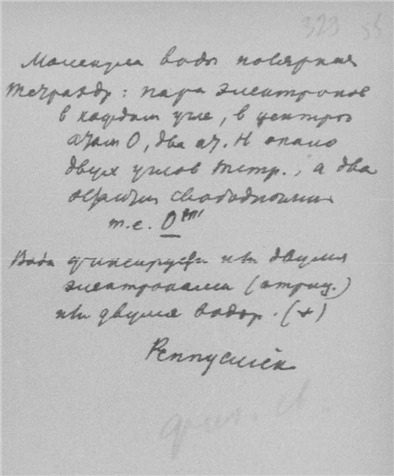 323 55
Молекула воды полярная
тетраэдр: пара электронов
в каждом угле, в центре
атом О, два ат. Н около
двух углов тетр., а два
свободными
т.е. O
Вода фиксируется или двумя
электронами (отриц.)
или двумя водор. (+)